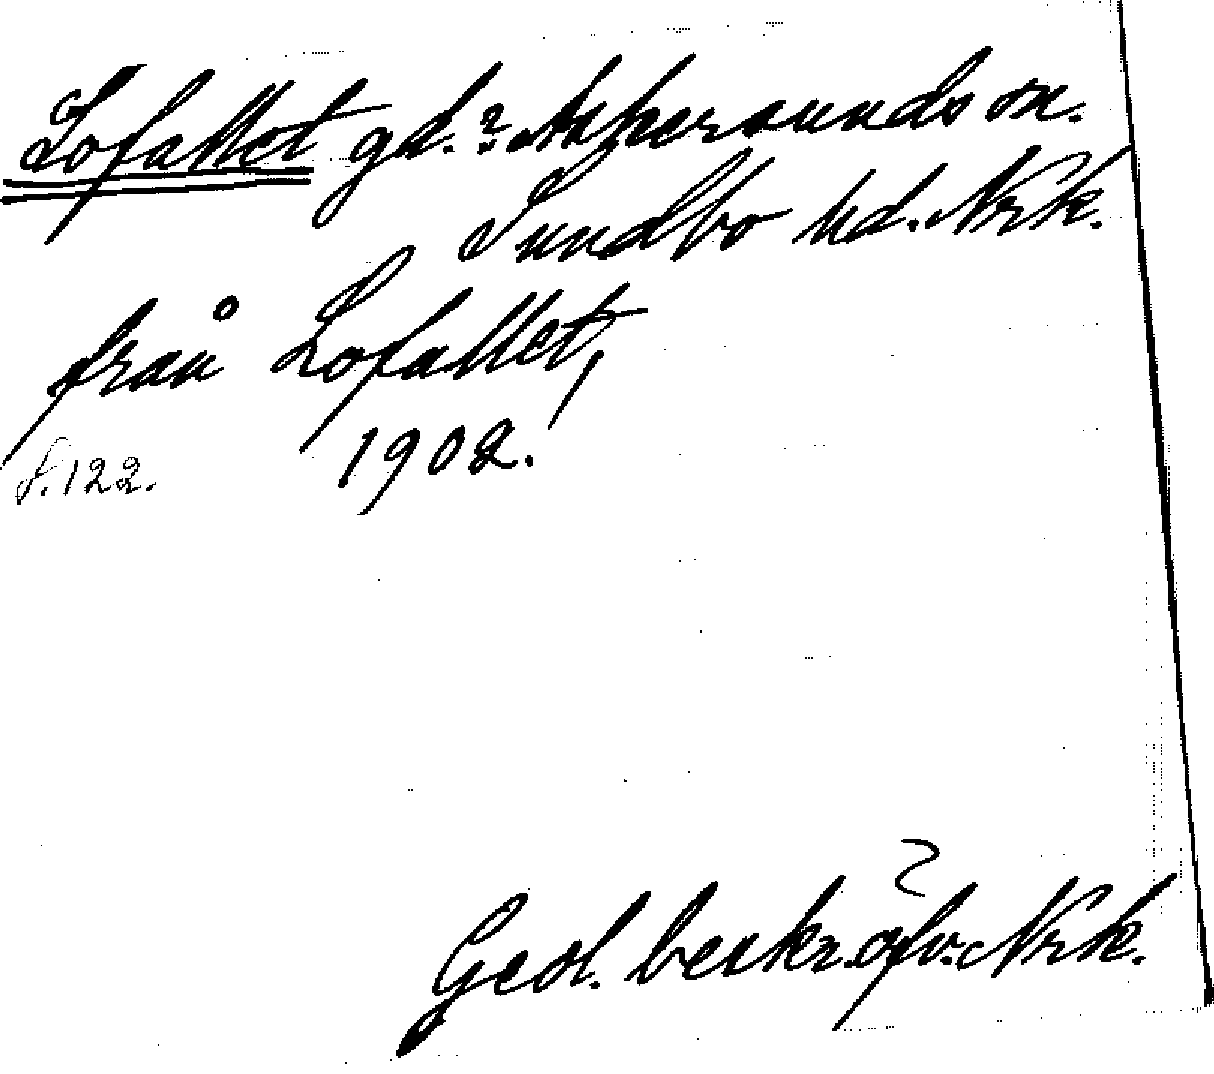 Lofallet gd.? Askersunds sn.
Sundbo hd. Nrk.
från Lofallet,
s. 122. 1902.
Geol. beskr. öfv. Nrk.